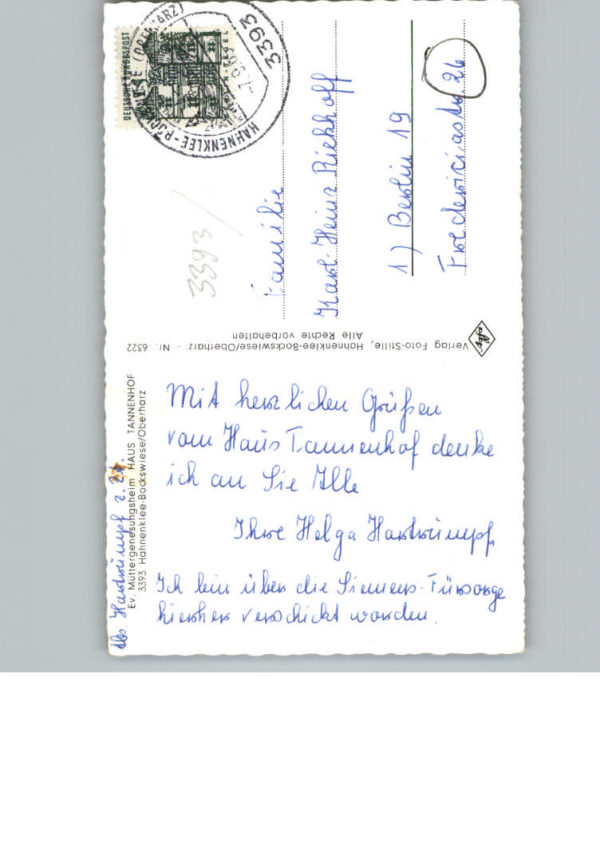 Mit herzlichen Grüßen
vom Haus Tannenhof denke
ich an Sie Alle
Ihre Helga Hartrumpf
Ich bin über die Siemens-Fürsorge
hierher verschickt worden.
Abs. Hartrumpf z. Zt.
Ev. Müttergenesungsheim HAUS TANNENHOF
3393 Hahnenklee-Bockswiese/Oberharz
Verlag Foto-Stille, Hahnenklee-Bockswiese/Oberharz - Nr. 6322
Alle Rechte vorbehalten
3393
Familie
Karl-Heinz Riekhoff
1) Berlin 19
Fredericiastr. 26
DEUTSCHE BUNDESPOST
3393
HAHNENKLEE-BOCKSWIESE (OBERHARZ)